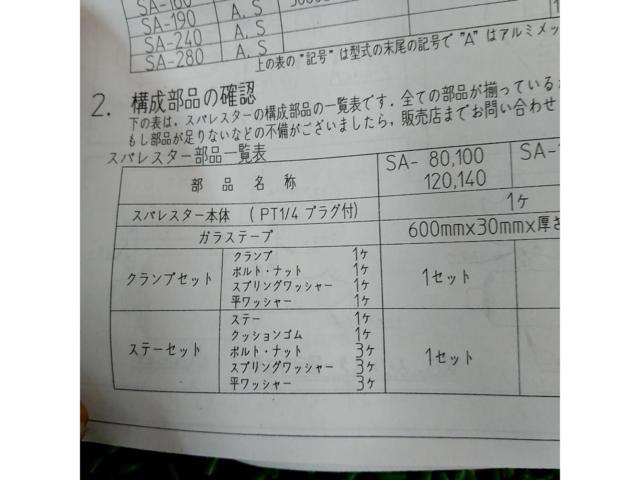 SA-160 A, S
SA-190 A, S
SA-240 A, S
SA-280 A, S
上の表の"記号"は型式の末尾の記号で "A" はアルミメッ
2. 構成部品の確認
下の表は、スパレスターの構成部品の一覧表です．全ての部品が揃っているか
もし部品が足りないなどの不備がございましたら，販売店までお問い合わせ
スパレスター部品一覧表
部 品 名 称 SA- 80,100 SA-1
120,140
スパレスター本体 ( PT1/4 プラグ付) 1ケ
ガラステープ 600mmx30mmx厚さ
クランプセット クランプ 1ケ 1セット
ボルト・ナット 1ケ
スプリングワッシャー 1ケ
平ワッシャー 1ケ
ステーセット ステー 1ケ 1セット
クッションゴム 1ケ
ボルト・ナット 3ケ
スプリングワッシャー 3ケ
平ワッシャー 3ケ